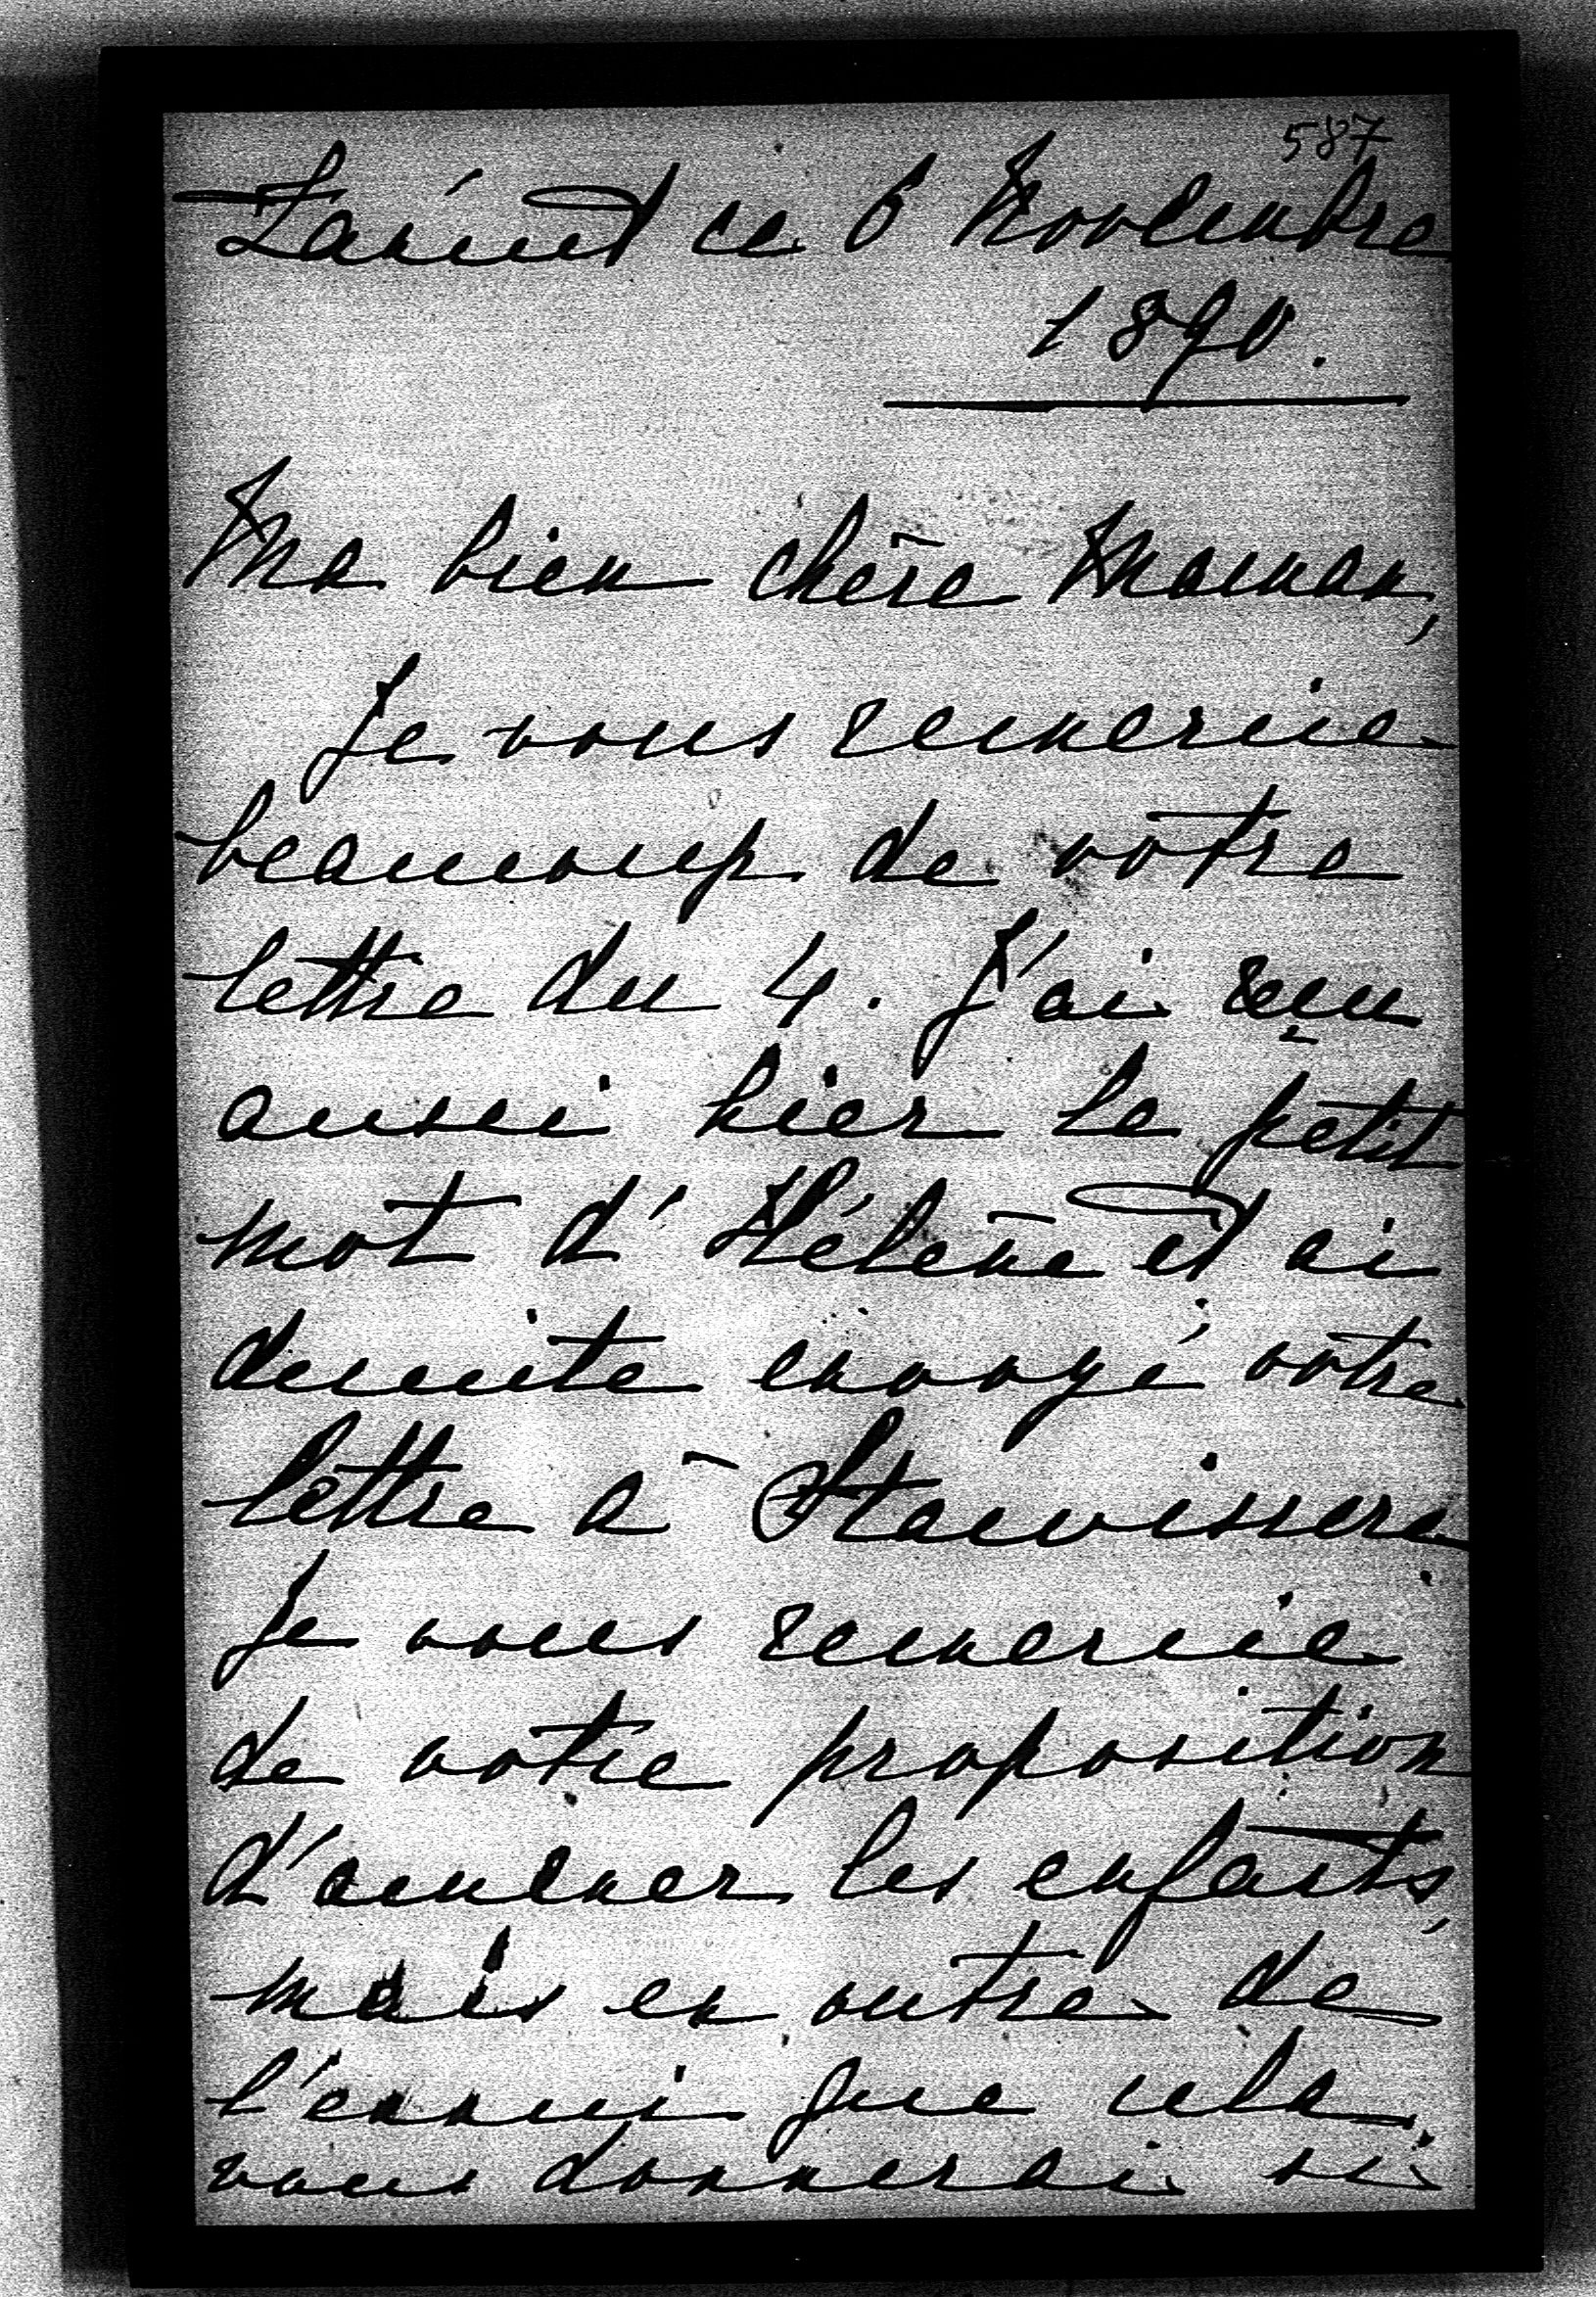 587
Łańcut ce 6 Novembre
1890.
Ma bien chère Maman,
Je vous remercie
beaucoup de votre
lettre du 4. J'ai reçu
aussi hier le petit
mot d'Hélène et ai
desuite envoyé votre
lettre à
Je vous remercie
de votre proposition
d'amener les enfants,
mais en outre de
l'ennui que cela
vous donnerai si